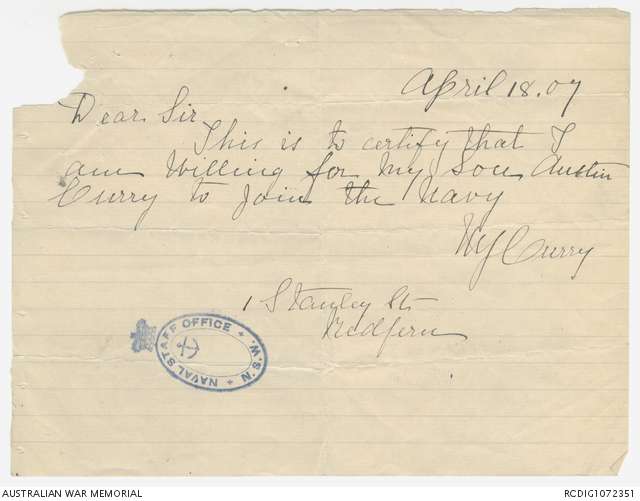 April 18.07
Dear Sir
This is to certify that I
am Willing for My Son Austin
Curry to Join the Navy
WJ Curry
1 Stanley St
Redfern
NAVAL STAFF OFFICE + N.S.W. +
AUSTRALIAN WAR MEMORIAL
RCDIG1072351